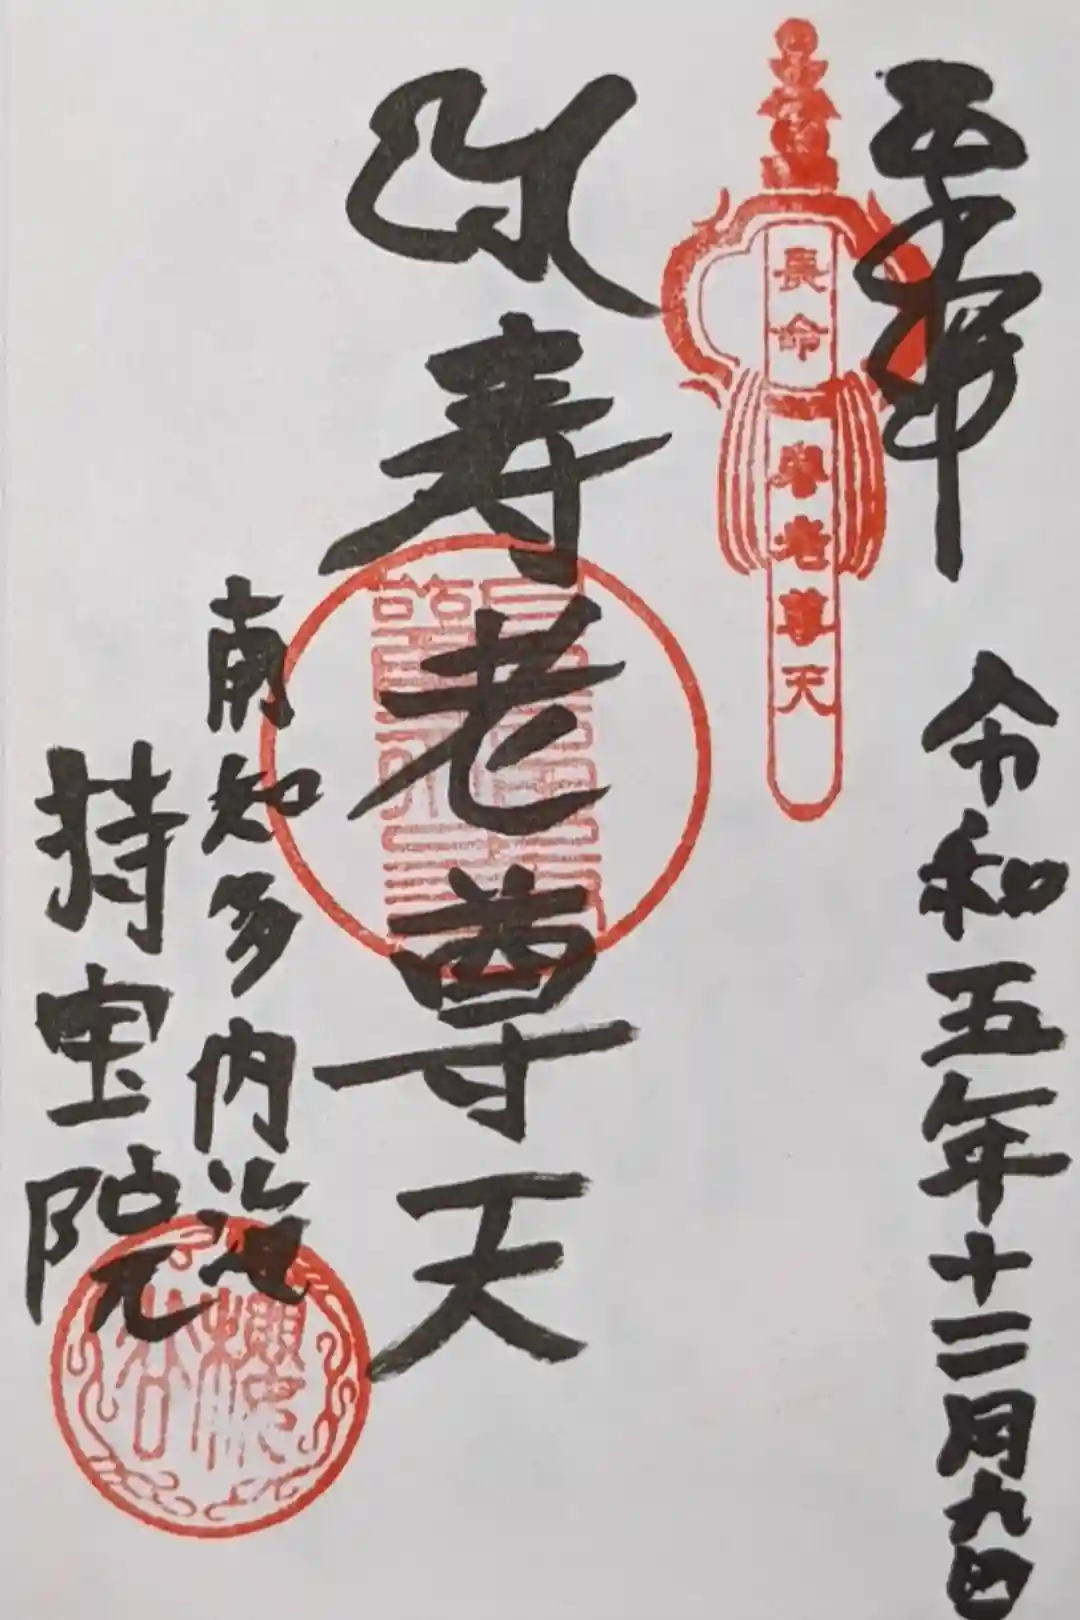 令和五年十二月九日
長命
壽老尊天
寿老尊天
南知多内海
持宝院